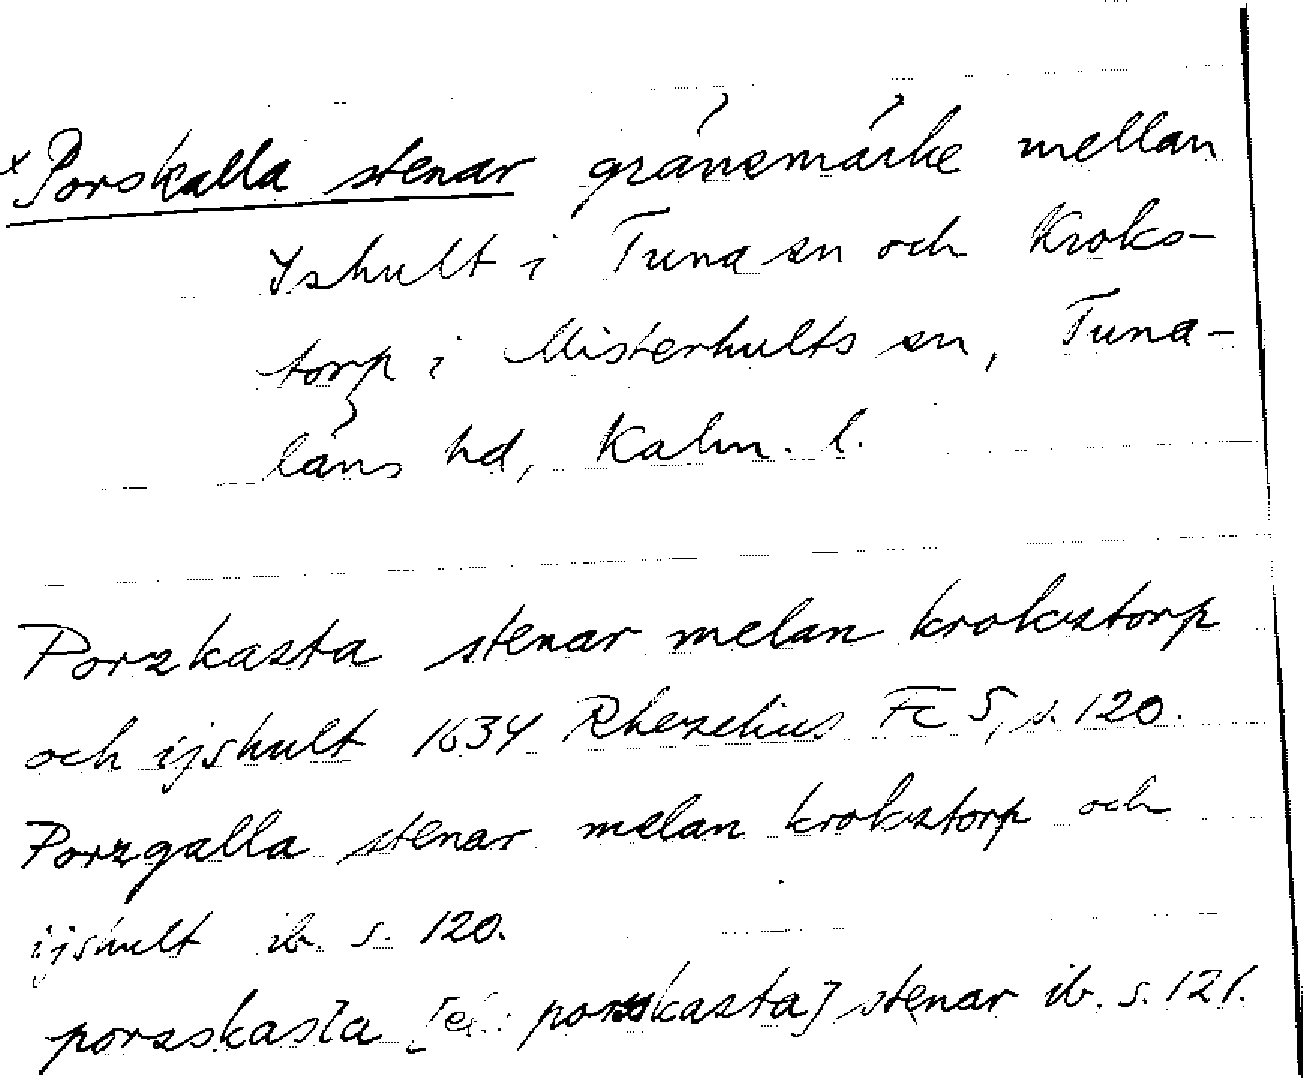 ×Porskalla stenar gränsmärke mellan
Ishult i Tuna sn och Kroks-
torp i Misterhults sn, Tuna-
läns hd, Kalm. l.
Porzkasta stenar melan krokztorp
och ijshult 1634 Rhezelius Fc 5, s. 120.
Porzgalla stenar melan krokztorp och
ijshult ib. s. 120.
porzskasta [el.: porskasta] stenar ib. s. 121.